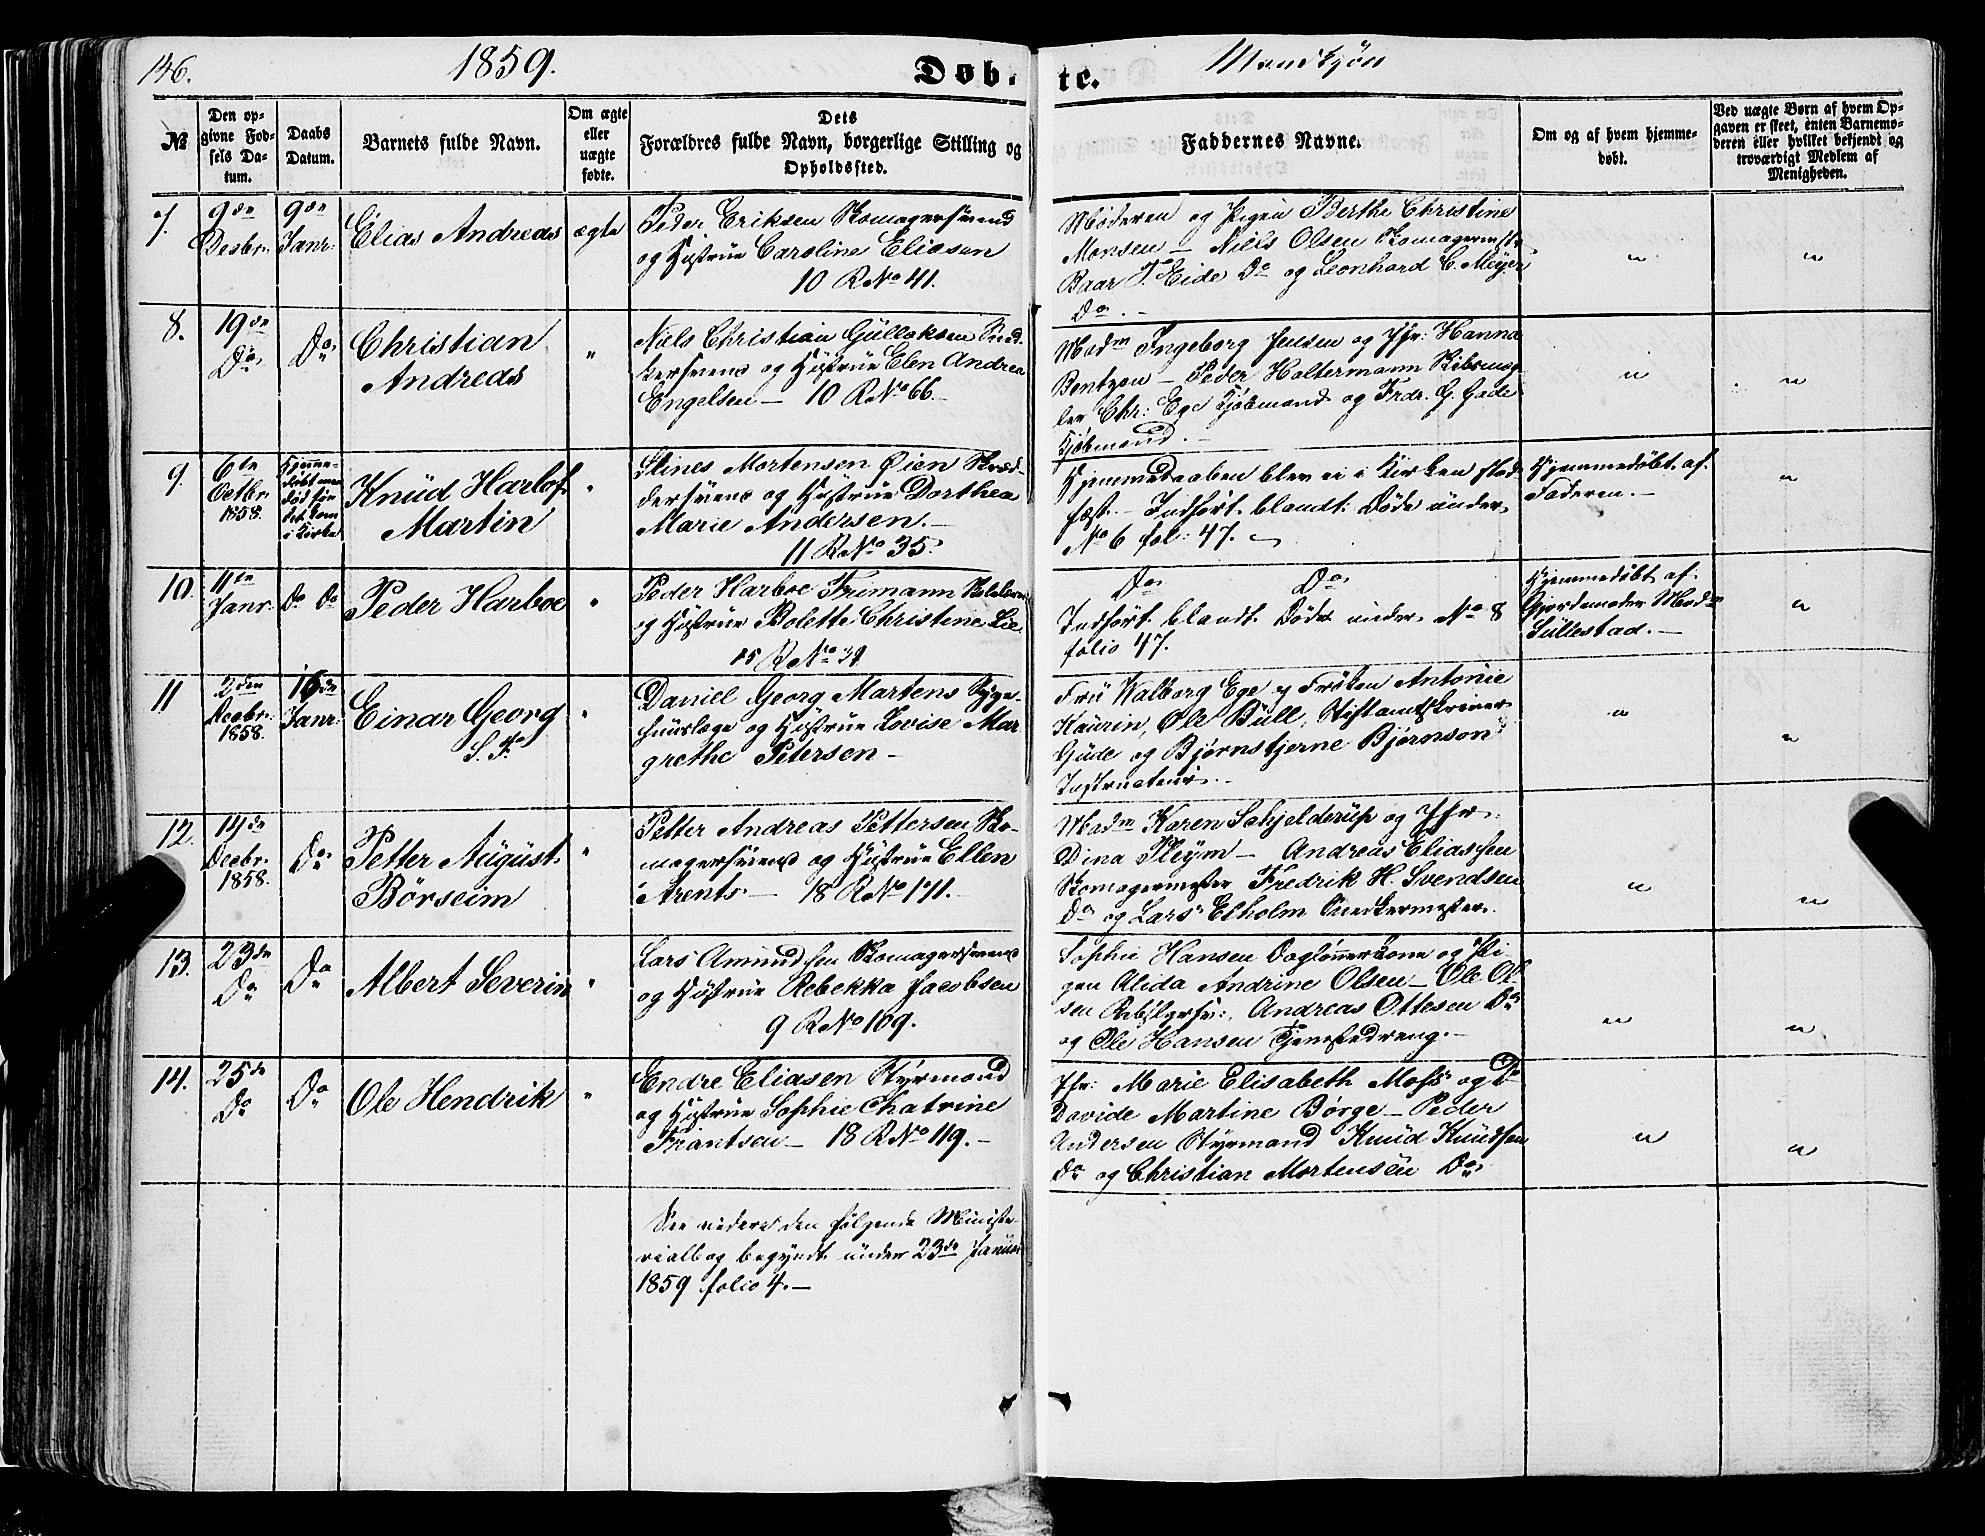 146. 1859. Døb- te. Mandkjøn
№
Den op-
givne Fød-
sels Da-
tum.
Daabs
Datum.
Barnets fulde Navn.
Om ægte
eller
uægte
fødte.
Dets
Forældres fulde Navn, borgerlige Stilling og
Opholdssted.
Faddernes Navne.
Om og af hvem hjemme-
døbt.
Ved uægte Børn af hvem Op-
gaven er skeet, enten Barnemo-
deren eller hvilket bekjendt og
troværdigt Medlem af
Menigheden.
7.
9de
Decbr.
9de
Janr:
Elias Andreas
ægte
Peder Eriksen Skomagersvend
og Hustrue Caroline Eliasen
10 R No 41.
Moderen og Pigen Berthe Christine
Monsen - Niels Olsen Skomagermstr
Baar T. Eide Do og Leonhard C. Meyer
Do. -
"
"
8.
19de
Do
Do
Christian
Andreas
"
Niels Christian Gullaksen Sned-
kersvend og Hustrue Elen Andrea
Engelsen - 10 R No 66.
Madm Ingeborg Jensen og Jfr: Hanna
Bentzon - Peder Haltermann Skibsmæg-
ler, Chr: Ege Kjøbmand og Frdr. G. Gade
Kjøbmand. -
"
"
9.
6te
Octbr.
1858.
Hjemme-
døbt men
død før
det kom
i Kirke
Knud Harlof
Martin
"
Stines Mortensen Øien Skræd-
dersvend og Hustrue Dorthea
Marie Andersen. -
11 R No 35.
Hjemmedaaben blev ei i Kirken stad-
fæst. - Indført blandt Døde under
No 6 fol: 47.
Hjemmedøbt af
Faderen. -
"
10.
11te
Janr.
Do Do
Peder Harboe
"
Peder Harboe Frimann Skolelærer
og Hustrue Bolette Christine Lie.
15 R No 29
Do Do
Indført blandt Døde under No 8
folio 47.
Hjemmedøbt af
Gjordemoder Madm
Sullestad. -
"
11
2den
Decbr.
1858.
16de
Janr:
Einar Georg
S. F.
"
Daniel Georg Martens Syge-
huuslæge og Hustrue Lovise Mar
grethe Petersen -
Fru Walborg Ege og Frøken Antonie
Kaurin, Ole Bull, Stiftamtskriver
Gude og Bjørnstjerne Bjørnson
Instructeur. -
"
"
12.
14de
Decbr.
1858.
Do
Petter August
Børseim
"
Petter Andreas Pettersen Sko-
magersvend og Hustrue Ellen
Arents. - 18 R No 171.
Madm Karen Schjelderup og Jfr.
Dina Pleym - Andreas Eliassen
Skomagermester Fredrik H. Svendsen
Do og Lars Ekholm Snedkermester.
"
"
13.
23de
Do
Do
Albert Severin
"
Lars Amundsen Skomagersvend
og Hustrue Rebekka Jacobsen
9 R No 109.
Sophie Hansen Daglønnerkone og Pi-
gen Alida Andrine Olsen - Ole Ol-
sen Rebslgrsv:, Andreas Ottesen Do
og Ole Hansen Tjenestedreng. -
"
"
14.
25de
Do
Do
Ole Hendrik
"
Endre Eliasen Styrmand
og Hustrue Sophie Chatrine
Frantsen - 18 R No 119. -
Jfr: Marie Elisabeth Moss og Do
Davide Martine Børge - Peder
Andersen Styrmand Knud Knudsen
Do og Christian Mortensen Do
"
"
See videre den følgende Ministe-
rialbog begyndt under 23de Januar
1859 folio 4. -